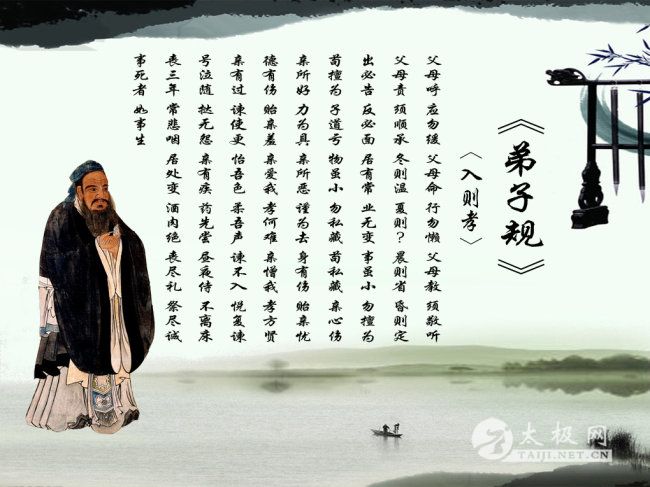 《弟子规》
〈入则孝〉
父母呼 应勿缓 父母命 行勿懒 父母教 须敬听
父母责 须顺承 冬则温 夏则? 晨则省 昏则定
出必告 反必面 居有常 业无变 事虽小 勿擅为
苟擅为 子道亏 物虽小 勿私藏 苟私藏 亲心伤
亲所好 力为具 亲所恶 谨为去 身有伤 贻亲忧
德有伤 贻亲羞 亲爱我 孝何难 亲憎我 孝方贤
亲有过 谏使更 怡吾色 柔吾声 谏不入 悦复谏
号泣随 挞无怨 亲有疾 药先尝 昼夜侍 不离床
丧三年 常悲咽 居处变 酒肉绝 丧尽礼 祭尽诚
事死者 如事生
太极网
TAIJI.NET.CN